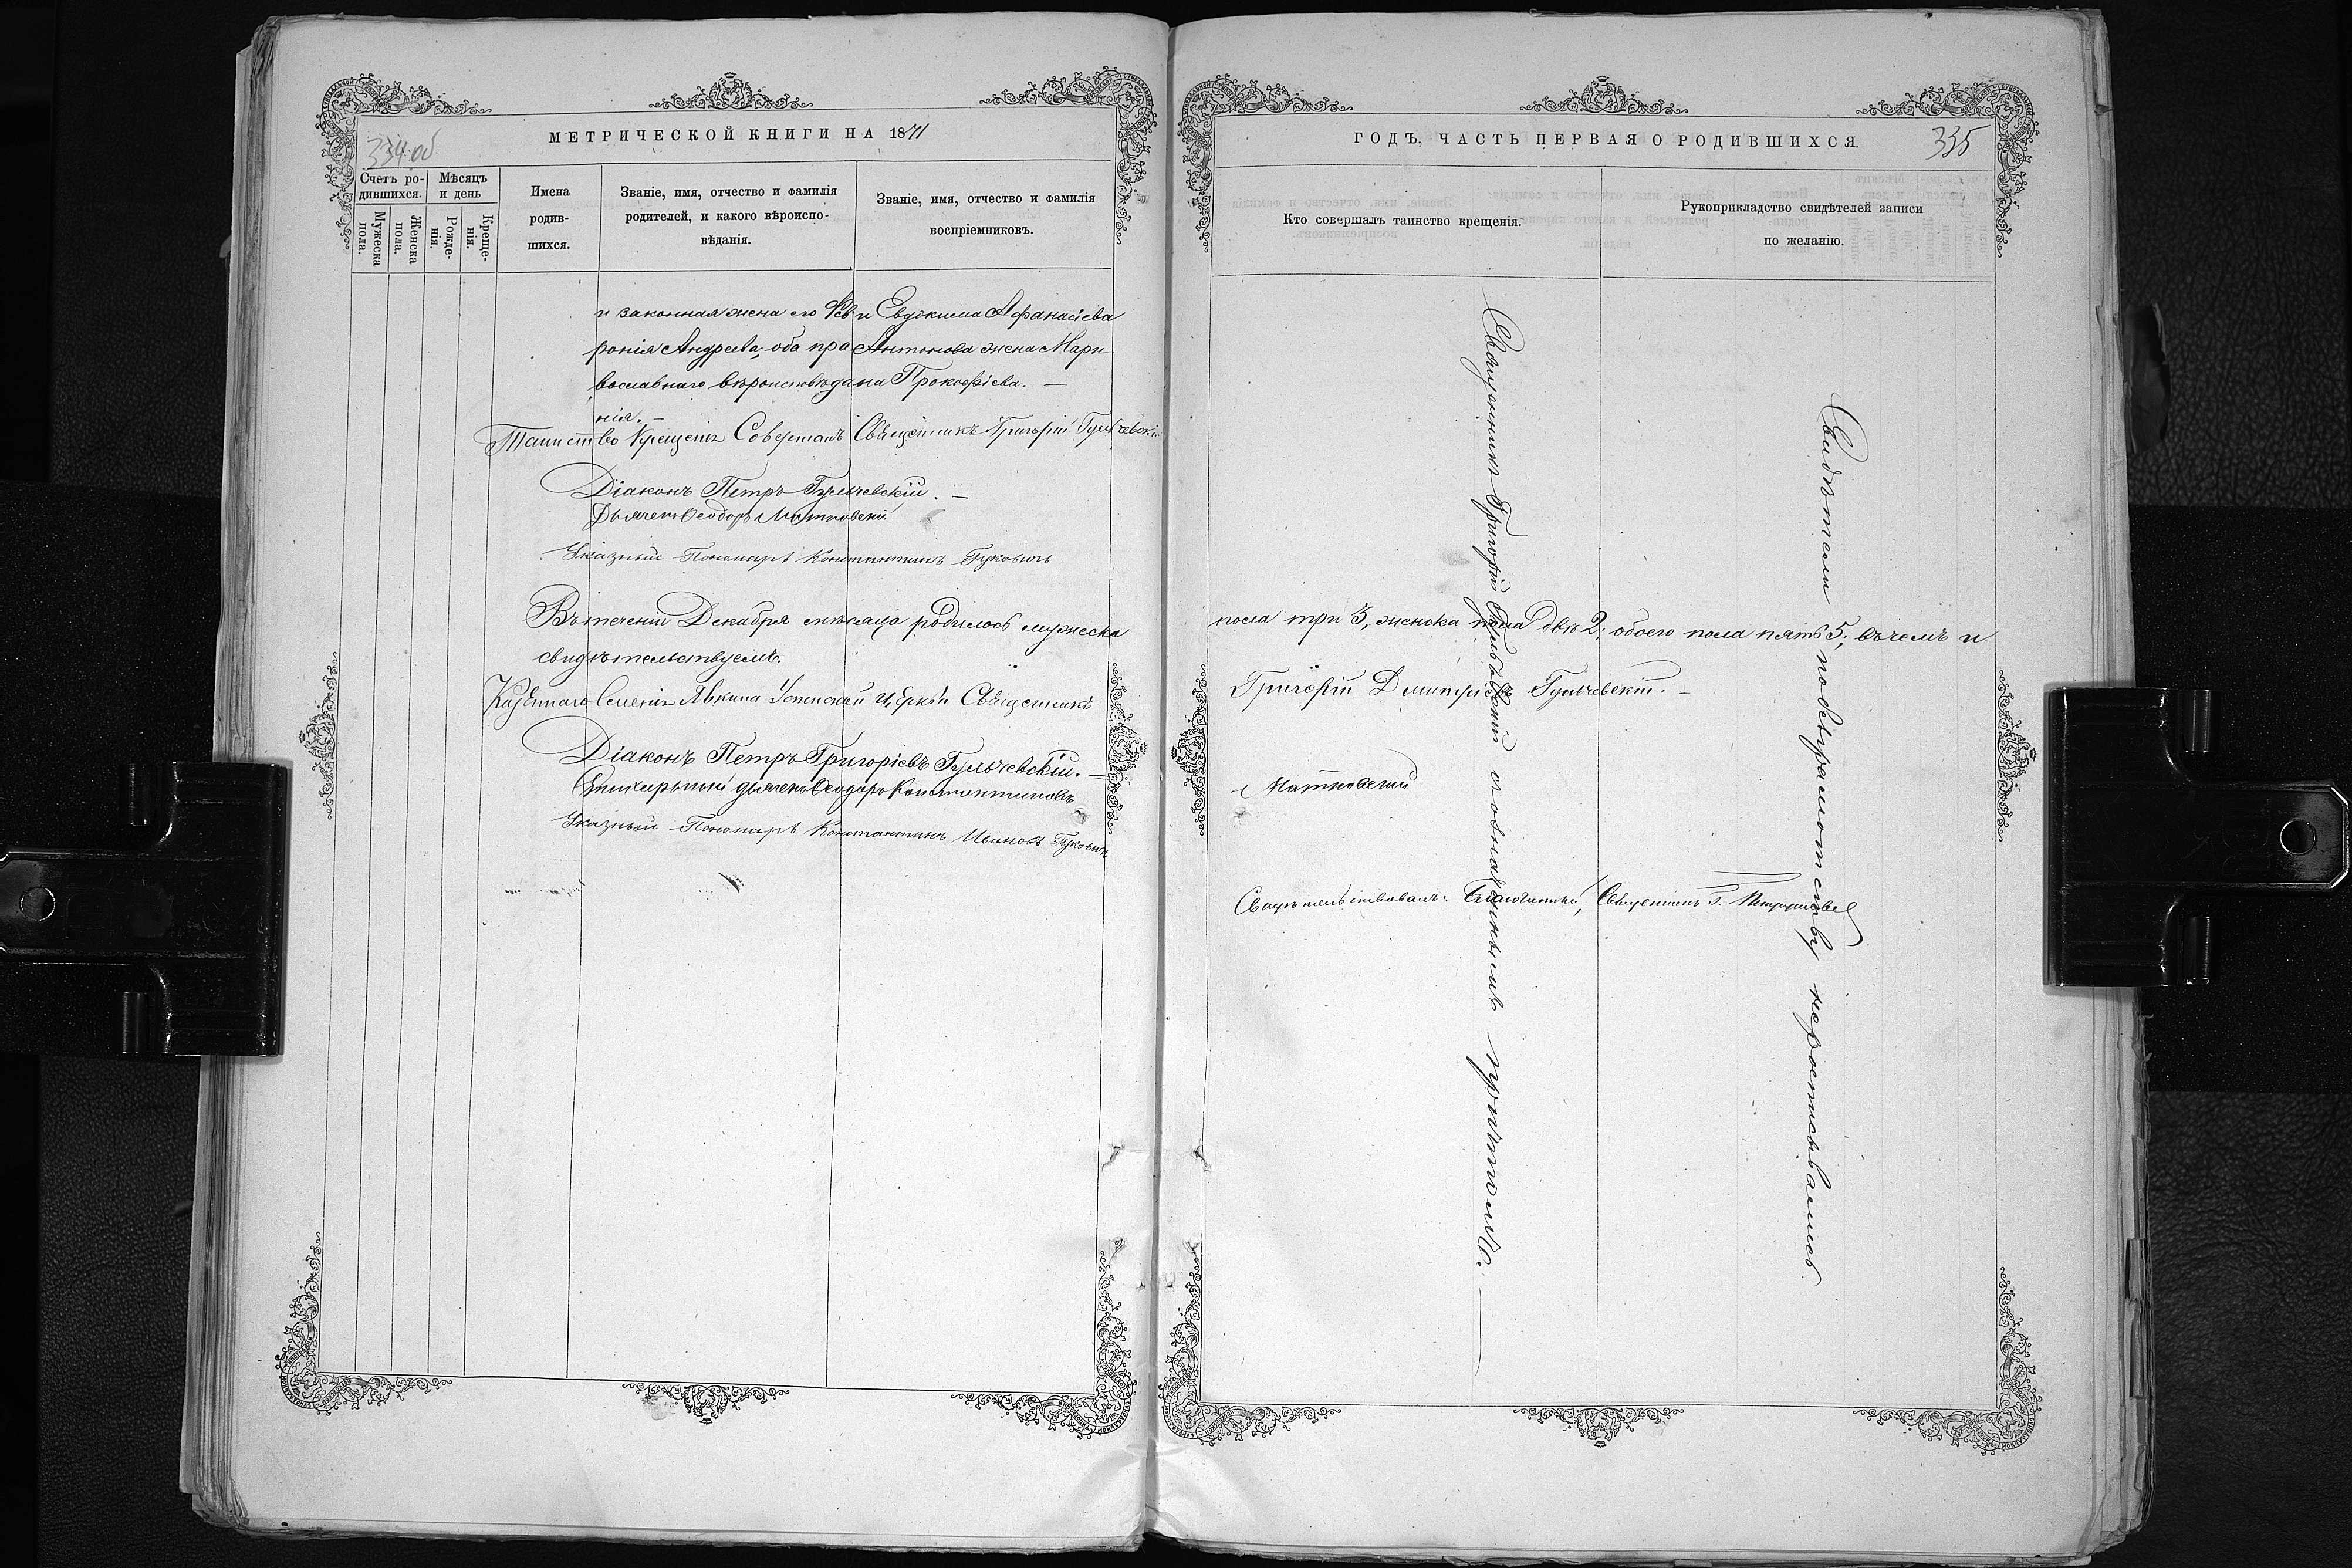 МЕТРИЧЕСКОЙ КНИГИ НА 1871
334 об
Счетъ ро-
дившихся.
Мѣсяцъ
и день
Мужеска
пола.
Женска
пола.
Рожде-
нія.
Креще-
нія.
Имена
родив-
шихся.
Званіе, имя, отчество и фамилія
родителей, и какого вѣроиспо-
вѣданія.
Званіе, имя, отчество и фамилія
воспріемниковъ.
и законная жена его Фев
ронія Андреева, оба пра
вославнаго вѣроисповѣда
нія. —
и Евдокима Афанасіева
Антонова жена Мари
на Прокофіева. —
Таинство Крещенія Совершалъ Священникъ Григорій Гульчевскій
Діаконъ Петръ Гульчевскій. —
Дьячекъ Ѳеодоръ Матковскій
Указный Пономарь Константинъ
Въ теченіи Декабря мѣсяца родилось мужеска
свидѣтельствуемъ.
Казеннаго Селенія Явкина Успенской Церкви Священникъ
Діаконъ Петръ Григоріевъ Гульчевскій. —
Стихарный дьячекъ Ѳеодоръ Константиновъ
Указный Пономарь Константинъ Ивановъ
ГОДЪ, ЧАСТЬ ПЕРВАЯ О РОДИВШИХСЯ.
335
Кто совершалъ таинство крещенія.
Рукоприкладство свидѣтелей записи
по желанію.
Священникъ Григорій Гульчевскій съ означеннымъ причтомъ.
Свидѣтели по неграмотству не росписывались.
пола три 3, женска пола двѣ 2; обоего пола пять 5; въ чемъ и
Григорій Димитріевъ Гульчевскій. —
Матковскій
Свидѣтельствовалъ: Благочинный, Священникъ Г.